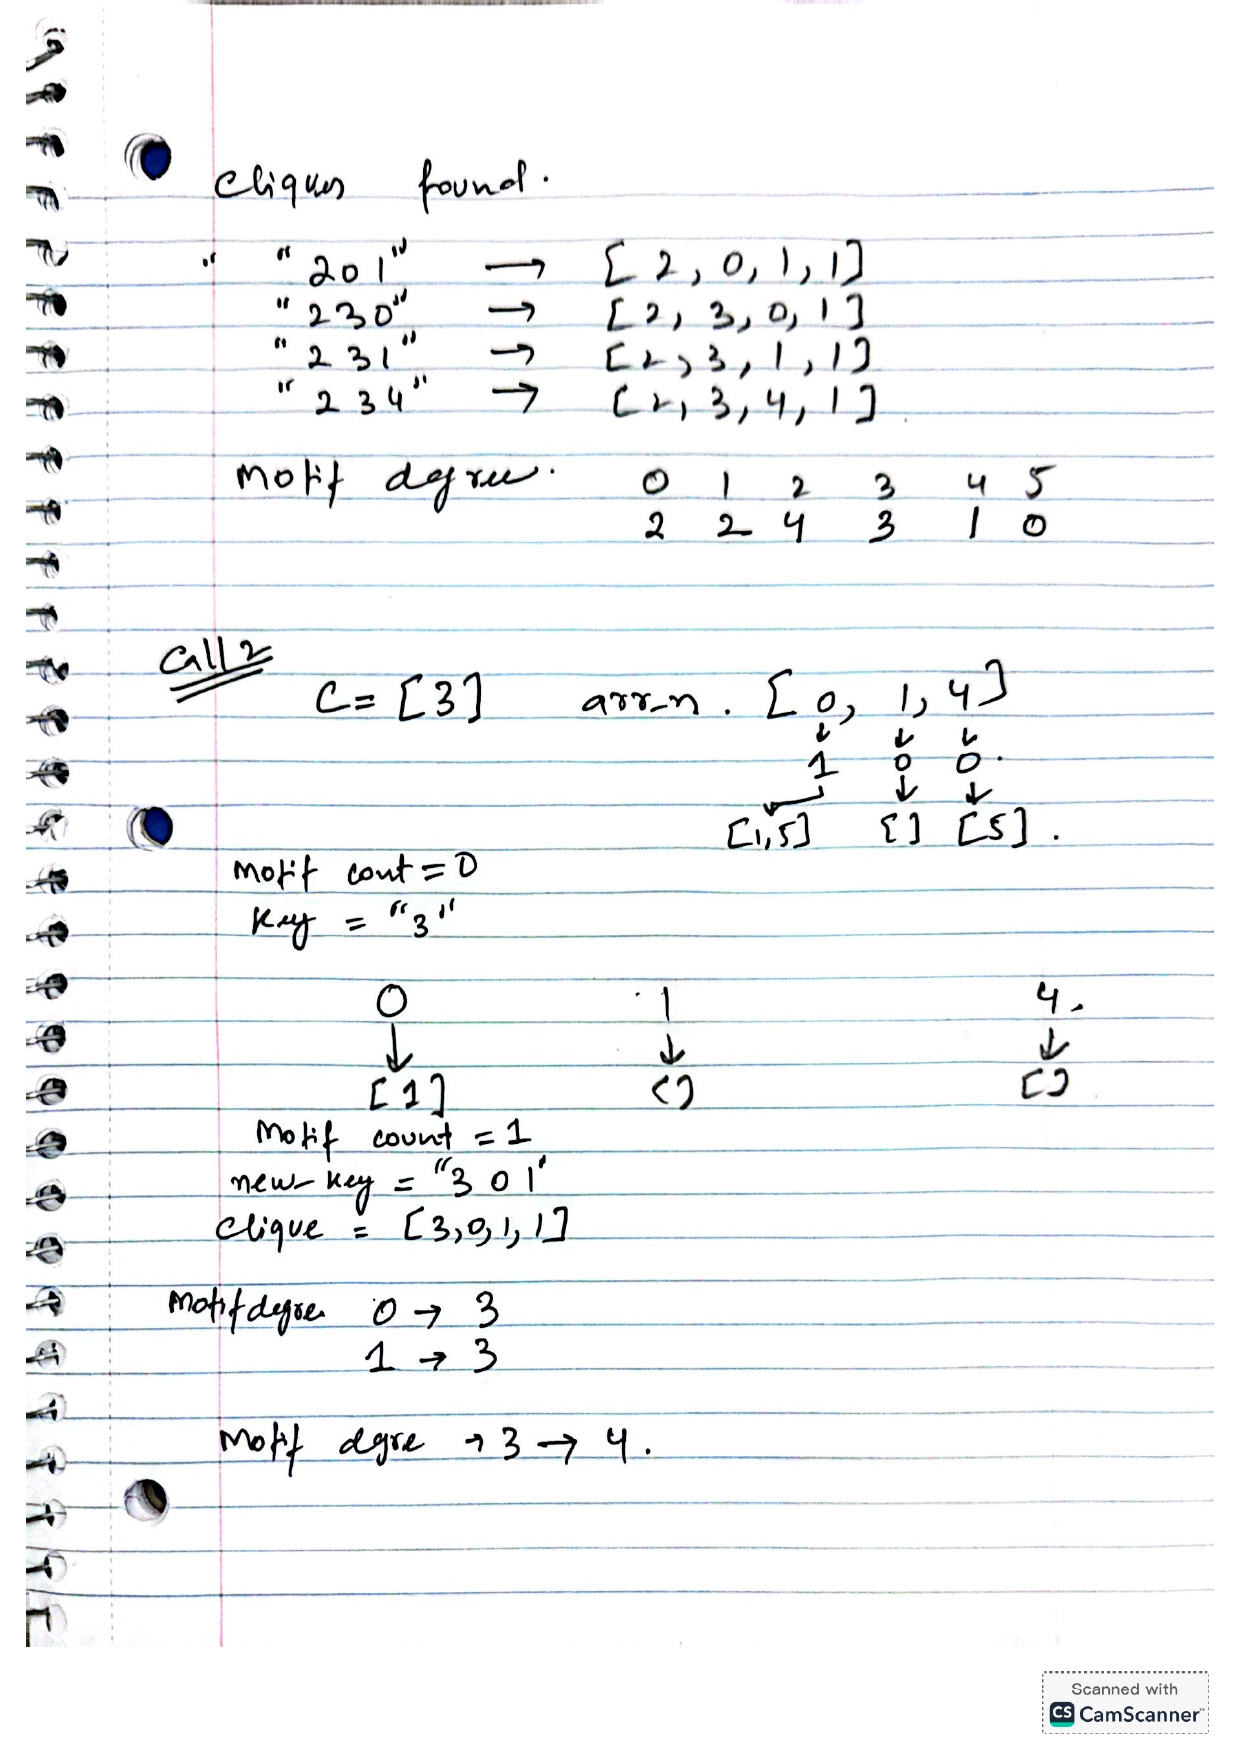 Cliques found.
" "201" → [2, 0, 1, 1]
"230" → [2, 3, 0, 1]
"231" → [2, 3, 1, 1]
"234" → [2, 3, 4, 1].
Motif degree. 0 1 2 3 4 5
2 2 4 3 1 0
Call 2
C = [3] arr_n. [0, 1, 4]
↓ ↓ ↓
1 0 0.
↓ ↓ ↓
[1,5] [] [5].
Motif cont = 0
Key = "3"
0 1 4.
↓ ↓ ↓
[1] [] []
Motif count = 1
new-key = "301"
Clique = [3,0,1,1]
Motifdegre 0 → 3
1 → 3
Motif dgre → 3 → 4.
Scanned with
CS CamScanner